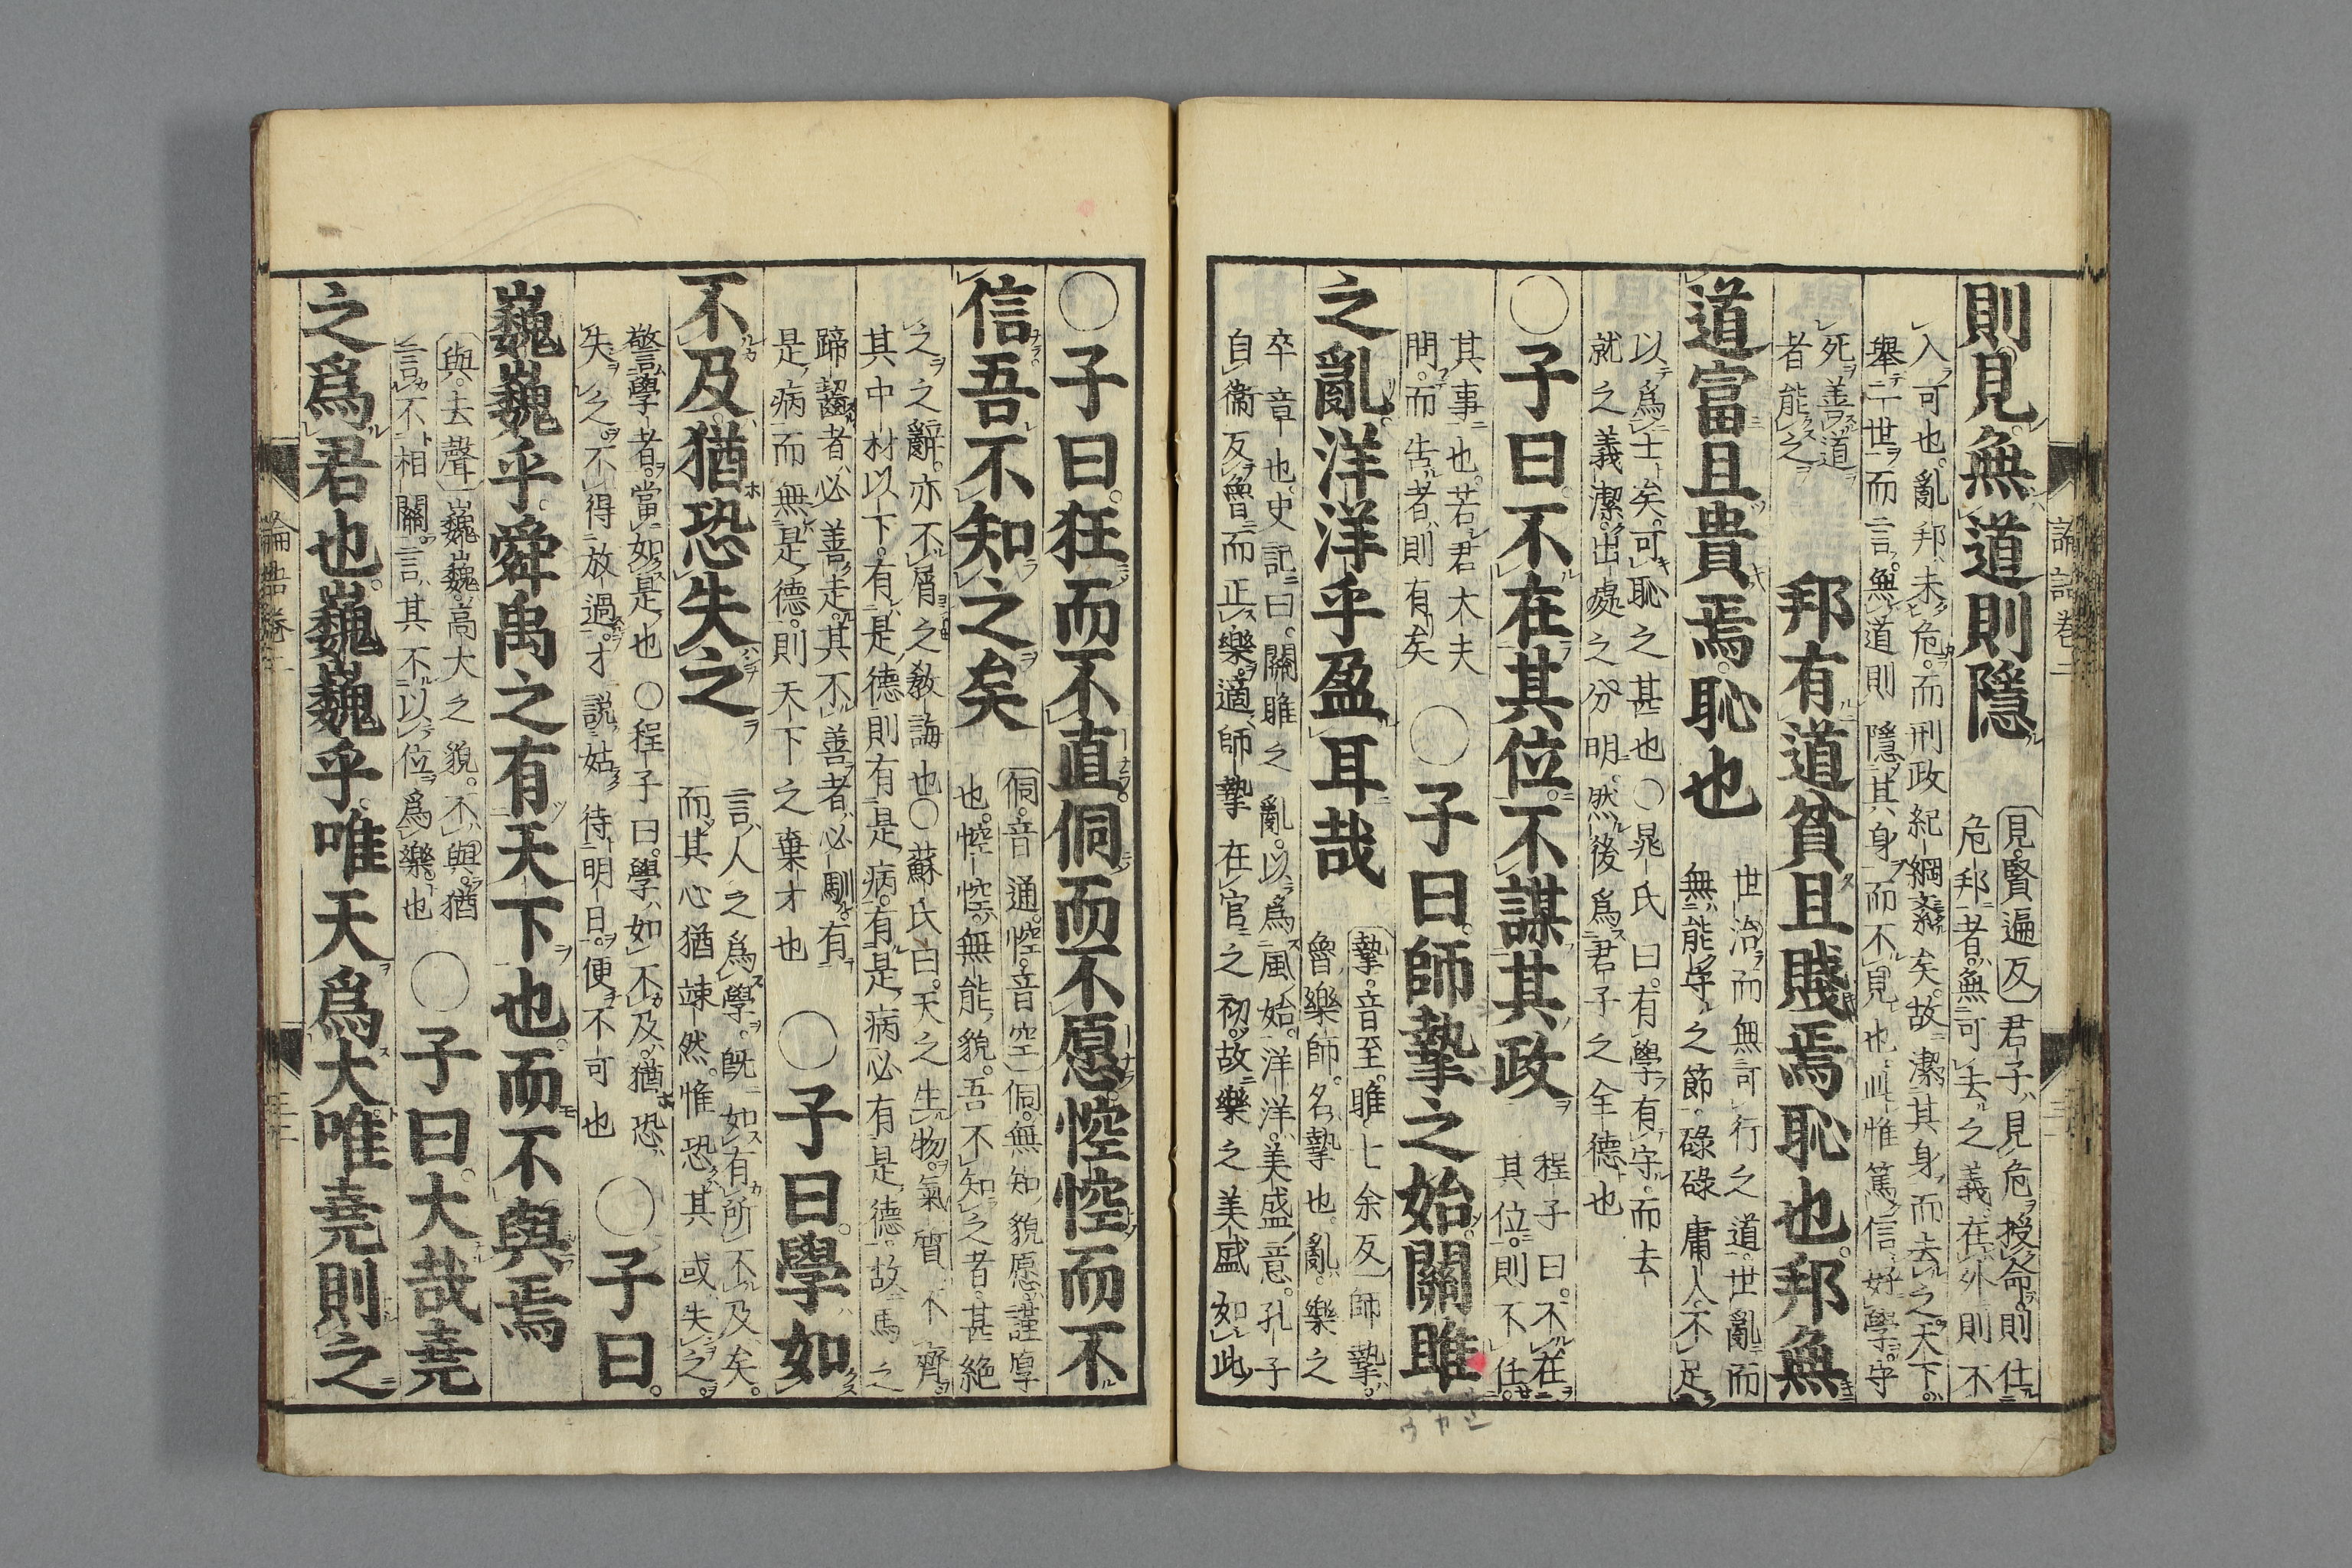 論語卷二
則見無道則隱
見賢遍反君子見危授命則仕
危邦者無可去之義在外則不
入可也亂邦未危而刑政紀綱紊矣故潔其身而去之天下
舉一世而言無道則隱其身而不見也此惟篤信好學守
死善道
者能之
邦有道貧且賤焉恥也邦無
道富且貴焉恥也
世治而無可行之道世亂而
無能守之節碌碌庸人不足
以爲士矣可恥之甚也○晁氏曰有學有守而去
就之義潔出處之分明然後爲君子之全德也
○子曰不在其位不謀其政
程子曰不在
其位則不任
其事也若君大夫
問而告者則有矣
○子曰師摯之始關雎
之亂洋洋乎盈耳哉
摯音至雎七余反師摯
魯樂師名摯也亂樂之
卒章也史記曰關雎之亂以爲風始洋洋美盛意孔子
自衛反魯而正樂適師摯在官之初故樂之美盛如此
○子曰狂而不直侗而不愿悾悾而不
信吾不知之矣
侗音通悾音空侗無知貌愿謹厚
也悾悾無能貌吾不知之者甚絶
之之辭亦不屑之教誨也○蘇氏曰天之生物氣質不齊
其中材以下有是德則有是病有是病必有是德故馬之
蹄齧者必善走其不善者必馴有
是病而無是德則天下之棄才也
○子曰學如
不及猶恐失之
言人之爲學旣如有所不及矣
而其心猶竦然惟恐其或失之
警學者當如是也○程子曰學如不及猶恐
失之不得放過才說姑待明日便不可也
○子曰
巍巍乎舜禹之有天下也而不與焉
與去聲巍巍高大之貌不與猶
言不相關言其不以位爲樂也
○子曰大哉堯
之爲君也巍巍乎唯天爲大唯堯則之
論語卷二